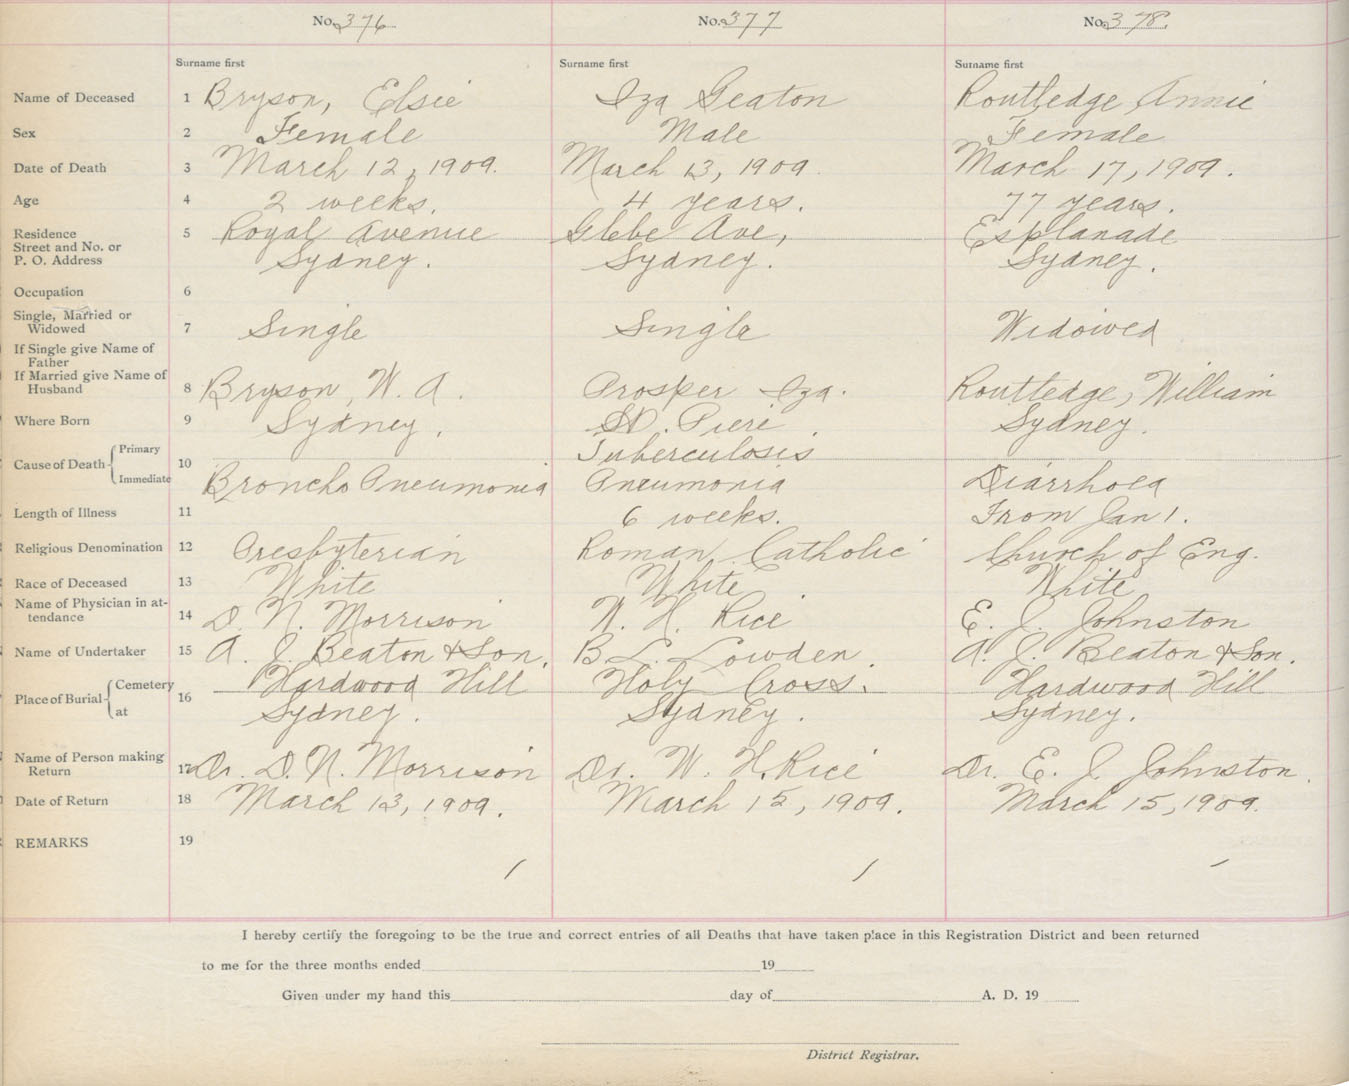 No. 376 No. 377 No. 378.
Surname first Surname first Surname first
Name of Deceased 1 Bryson, Elsie Iza Geaton Routledge Annie
Sex 2 Female Male Female
Date of Death 3 March 12, 1909. March 13, 1909. March 17, 1909.
Age 4 2 weeks. 4 years. 77 years.
Residence 5 Royal Avenue Glebe Ave, Esplanade
Street and No. or
P. O. Address Sydney. Sydney. Sydney.
Occupation 6
Single, Married or
Widowed 7 Single Single Widowed
If Single give Name of
Father
If Married give Name of
Husband 8 Bryson, W. A. Prosper Iza. Routledge, William
Where Born 9 Sydney. St. Pieré. Sydney.
Primary Tuberculosis
Cause of Death 10
Immediate Broncho Pneumonia Pneumonia Diarrhoea
Length of Illness 11 6 weeks. From Jan 1.
Religious Denomination 12 Presbyterian Roman Catholic Church of Eng.
Race of Deceased 13 White White White
Name of Physician in at-
tendance 14 D. N. Morrison W. H. Rice E. J. Johnston
Name of Undertaker 15 A. J. Beaton & Son. B. L. Lowden. A. J. Beaton & Son.
Cemetery Hardwood Hill Holy Cross. Hardwood Hill
Place of Burial 16
at Sydney. Sydney. Sydney.
Name of Person making
Return 17 Dr. D. N. Morrison Dr. W. H. Rice Dr. E. J. Johnston.
Date of Return 18 March 13, 1909. March 15, 1909. March 15, 1909.
REMARKS 19
I hereby certify the foregoing to be the true and correct entries of all Deaths that have taken place in this Registration District and been returned
to me for the three months ended 19
Given under my hand this day of A. D. 19
District Registrar.